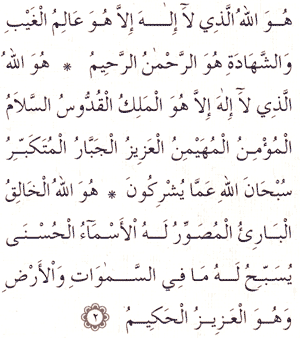 هُوَ اللهُ الَّذِي لَآ إِلٰـــهَ إِلَّا هُوَ عَالِمُ الْغَيْبِ
وَالشَّهَادَةِ هُوَ الرَّحْمٰنُ الرَّحِيمُ * هُوَ اللهُ
الَّذِي لَآ إِلٰهَ إِلَّا هُوَ الْمَلِكُ الْقُدُّوسُ السَّلَامُ
الْمُؤْمِنُ الْمُهَيْمِنُ الْعَزِيزُ الْجَبَّارُ الْمُتَكَبِّرُ
سُبْحَانَ اللهِ عَمَّا يُشْرِكُونَ * هُوَ اللهُ الْخَالِقُ
الْبَارِئُ الْمُصَوِّرُ لَــهُ الْأَسْمَآءُ الْحُسْنَى
يُسَبِّحُ لَــهُ مَا فِي السَّــمٰوَاتِ وَالْأَرْضِ
وَهُوَ الْعَزِيزُ الْحَكِيمُ ٢